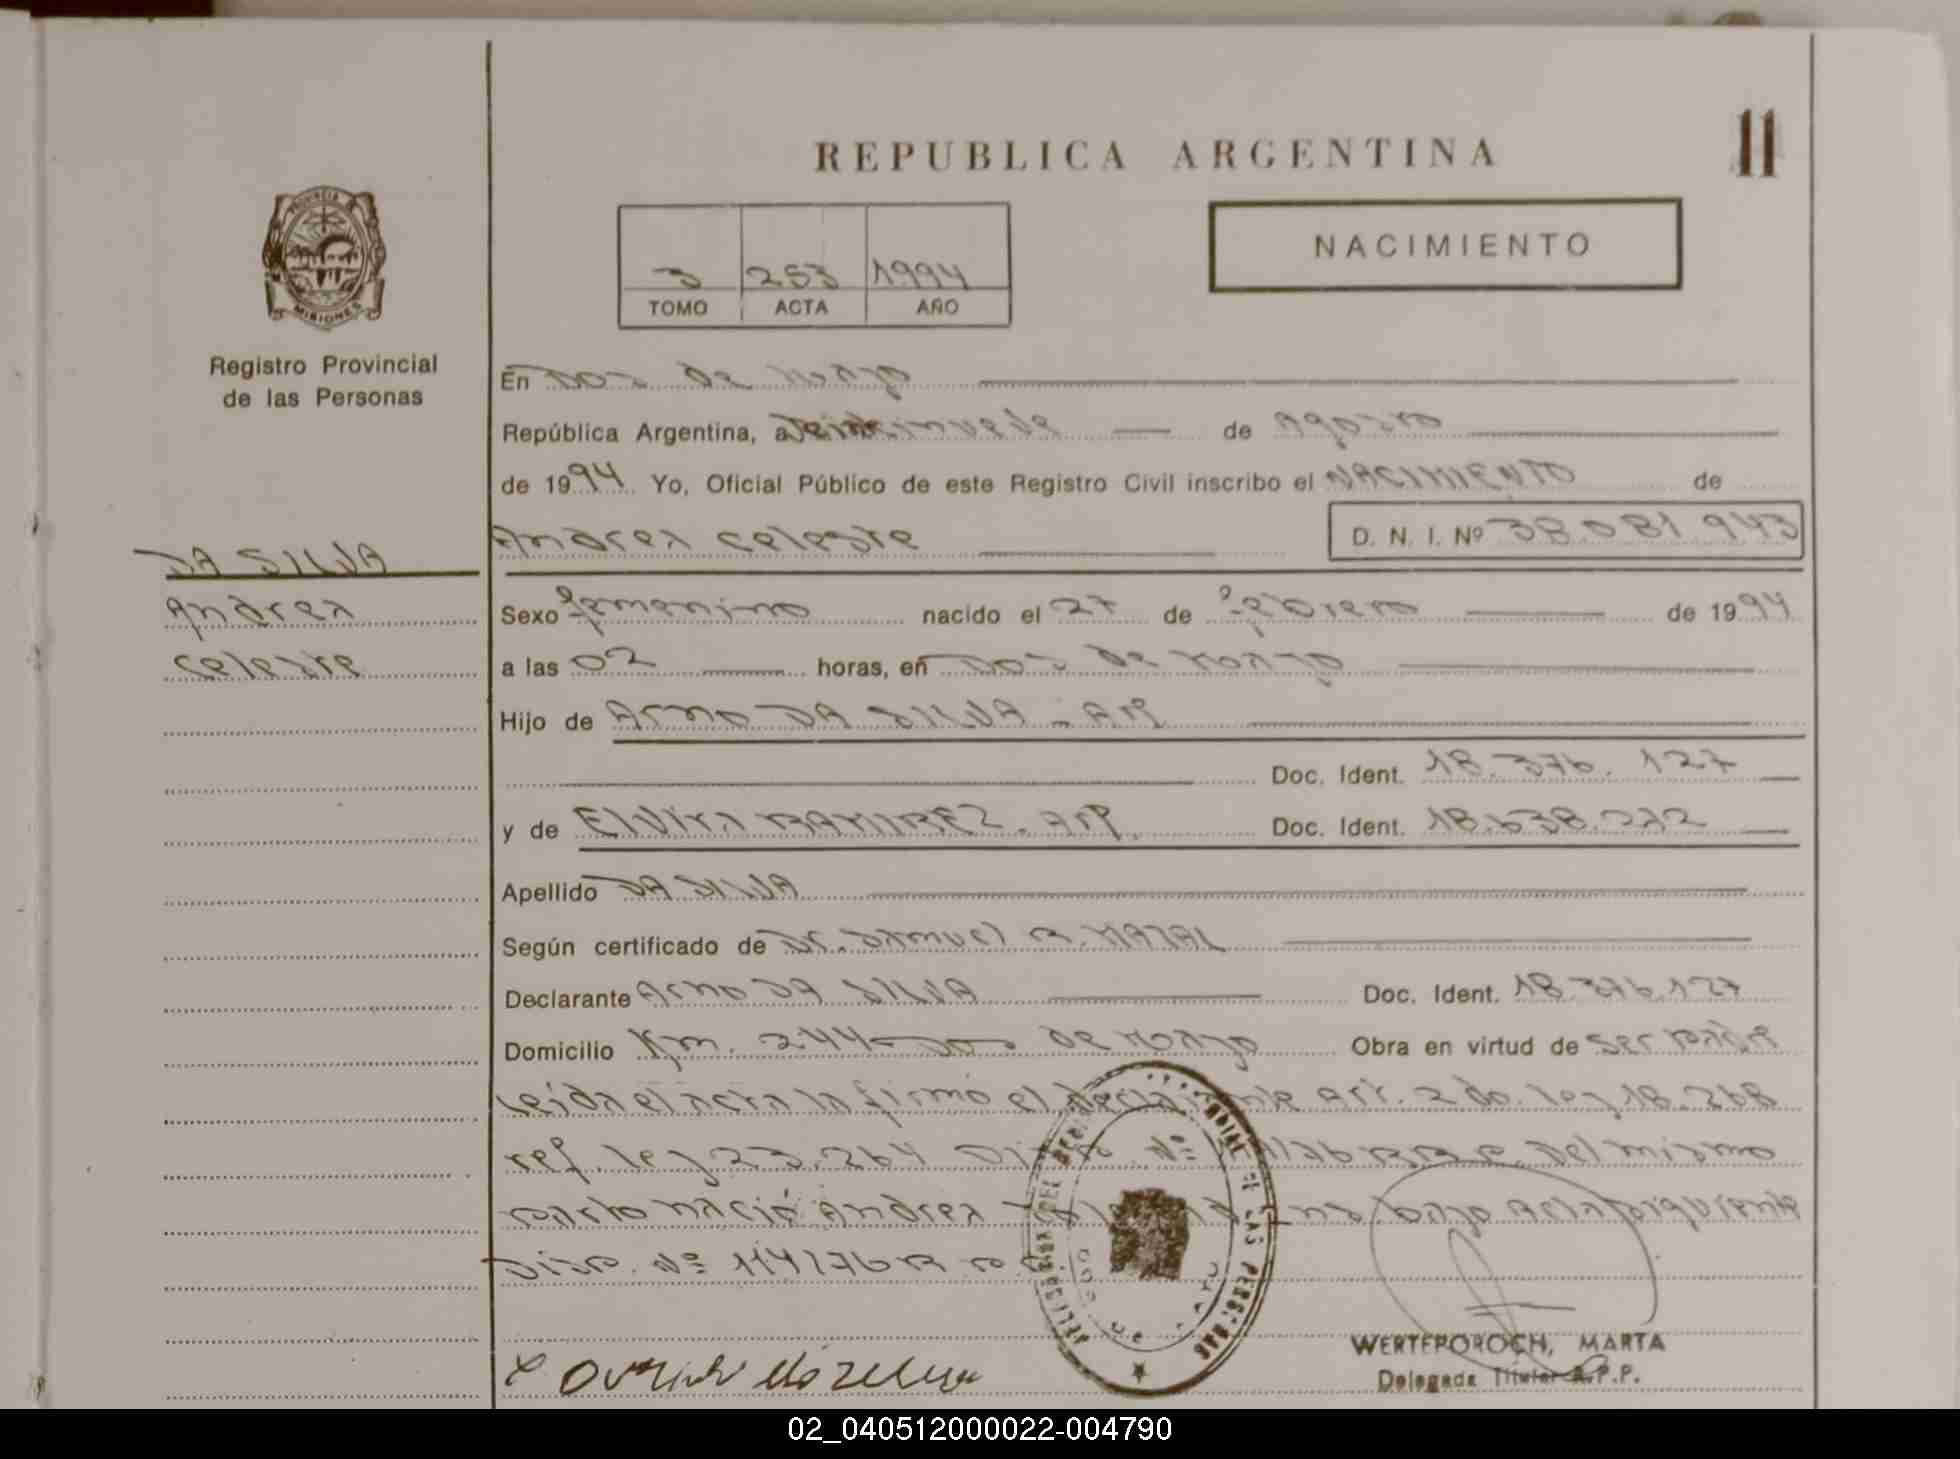 REPUBLICA ARGENTINA
11
NACIMIENTO
3 253 1994
TOMO ACTA AÑO
PROVINCIA DE
MISIONES
Registro Provincial
de las Personas
DA SILVA
Andrea
Celeste
En Dos de Mayo
República Argentina, a de Agosto
de 1994 Yo, Oficial Público de este Registro Civil inscribo el NACIMIENTO de
Andrea Celeste D. N. I. Nº 38.081.943
Sexo femenino nacido el 27 de febrero de 1994
a las 02 horas, en Dos de Mayo
Hijo de Arno DA SILVA - Arg
Doc. Ident. 18.376.127
y de Elvira RAMIREZ. Arg. Doc. Ident.
Apellido DA SILVA
Según certificado de Dr. Samuel R.
Declarante Arno DA SILVA Doc. Ident. 18.376.127
Domicilio Km. 244 - Dos de Mayo Obra en virtud de ser padre
Leida el acta la firmó el declarante Art. 2 do. ley 18.248
ref. ley 23.264 Del mismo
parto nació Andrea Acta siguiente
Disp. Nº 114/76
WERTEPOROCH, MARTA
Delegada Titular R.P.P.
02_040512000022-004790